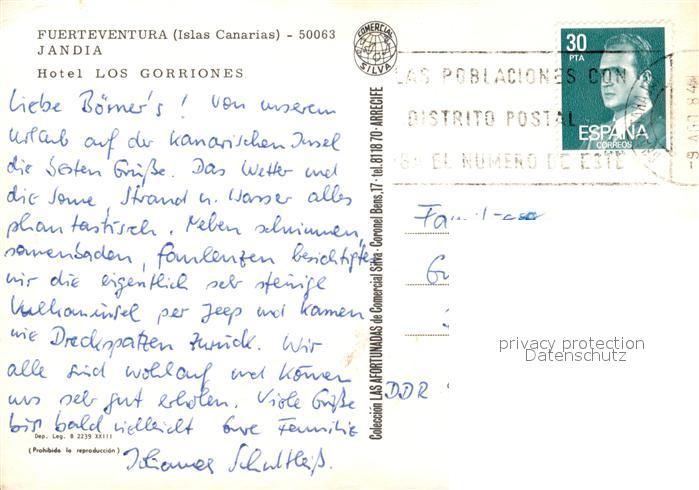 FUERTEVENTURA (Islas Canarias) - 50063
JANDIA
Hotel LOS GORRIONES
Liebe Börner's! Von unserem
Urlaub auf der kanarischen Insel
die besten Grüße. Das Wetter und
die Sonne, Strand u. Wasser alles
phantastisch. Neben schwimmen,
sonnenbaden, faulenzen besichtigten
wir die eigentlich sehr steinige
Vulkaninsel per Jeep und kamen
wie Dreckspatzen zurück. Wir
alle sind wohlauf und können
uns sehr gut erholen. Viele Grüße
bis bald vielleicht Eure Familie
Schultheiß.
Dep. Leg. B 2239 XXIII
(Prohibida la reproducción)
COMERCIAL
SILVA
Colección LAS AFORTUNADAS de Comercial Silva · Coronel Bens, 17 · tel. 81 18 70 · ARRECIFE
LAS POBLACIONES CON
DISTRITO POSTAL
EL NUMERO DE ESTE
30
PTA
ESPAÑA
CORREOS
DDR
privacy protection
Datenschutz